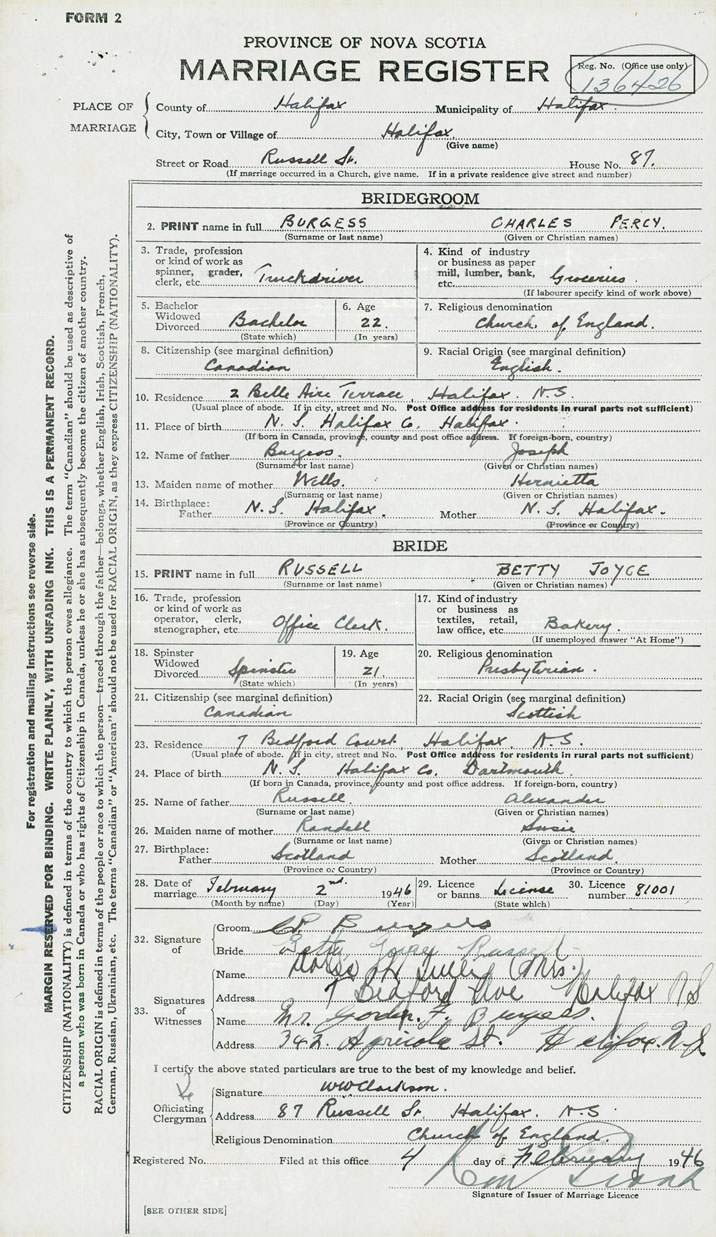 FORM 2
PROVINCE OF NOVA SCOTIA
MARRIAGE REGISTER
Reg. No. (Office use only)
136426
PLACE OF MARRIAGE
County of Halifax Municipality of Halifax.
City, Town or Village of Halifax
(Give name)
Street or Road Russell St. House No. 87.
(If marriage occurred in a Church, give name. If in a private residence give street and number)
BRIDEGROOM
2. PRINT name in full BURGESS CHARLES PERCY.
(Surname or last name) (Given or Christian names)
3. Trade, profession or kind of work as spinner, grader, clerk, etc. Truckdriver
4. Kind of industry or business as paper mill, lumber, bank, etc. Groceries
(If labourer specify kind of work above)
5. Bachelor Widowed Divorced Bachelor
(State which)
6. Age 22.
(In years)
7. Religious denomination
Church of England.
8. Citizenship (see marginal definition)
Canadian
9. Racial Origin (see marginal definition)
English.
10. Residence 2 Belle Aire Terrace, Halifax N.S.
(Usual place of abode. If in city, street and No. Post Office address for residents in rural parts not sufficient)
11. Place of birth N.S. Halifax Co. Halifax.
(If born in Canada, province, county and post office address. If foreign-born, country)
12. Name of father Burgess. Joseph
(Surname or last name) (Given or Christian names)
13. Maiden name of mother Wells. Henrietta
(Surname or last name) (Given or Christian names)
14. Birthplace: Father N.S. Halifax. Mother N.S. Halifax.
(Province or Country) (Province or Country)
BRIDE
15. PRINT name in full RUSSELL BETTY JOYCE
(Surname or last name) (Given or Christian names)
16. Trade, profession or kind of work as operator, clerk, stenographer, etc. Office Clerk.
17. Kind of industry or business as textiles, retail, law office, etc. Bakery.
(If unemployed answer "At Home")
18. Spinster Widowed Divorced Spinster
(State which)
19. Age 21.
(In years)
20. Religious denomination
Presbyterian.
21. Citizenship (see marginal definition)
Canadian
22. Racial Origin (see marginal definition)
Scottish
23. Residence 7 Bedford Court, Halifax N.S.
(Usual place of abode. If in city, street and No. Post Office address for residents in rural parts not sufficient)
24. Place of birth N.S. Halifax Co. Dartmouth.
(If born in Canada, province, county and post office address. If foreign-born, country)
25. Name of father Russell Alexander
(Surname or last name) (Given or Christian names)
26. Maiden name of mother Randell Susie
(Surname or last name) (Given or Christian names)
27. Birthplace: Father Scotland Mother Scotland.
(Province or Country) (Province or Country)
28. Date of marriage February 2nd. 1946
(Month by name) (Day) (Year)
29. Licence or banns License
(State which)
30. Licence number 81001
32. Signature of
Groom CP Burgess
Bride Betty Joyce Russell
33. Signatures of Witnesses
Name (Mrs.)
Address 7 Bedford Halifax NS
Name Mr. Gordon. F. Burgess.
Address 342 Agricola St. Halifax. N.S.
I certify the above stated particulars are true to the best of my knowledge and belief.
Officiating Clergyman
Signature WWClarkson.
Address 87 Russell St. Halifax. N.S
Religious Denomination Church of England.
Registered No. Filed at this office 4 day of February 1946
Signature of Issuer of Marriage Licence
[SEE OTHER SIDE]
For registration and mailing instructions see reverse side.
MARGIN RESERVED FOR BINDING. WRITE PLAINLY, WITH UNFADING INK. THIS IS A PERMANENT RECORD.
CITIZENSHIP (NATIONALITY) is defined in terms of the country to which the person owes allegiance. The term "Canadian" should be used as descriptive of
a person who was born in Canada or who has rights of Citizenship in Canada, unless he or she has subsequently become the citizen of another country.
RACIAL ORIGIN is defined in terms of the people or race to which the person—traced through the father—belongs, whether English, Irish, Scottish, French,
German, Russian, Ukrainian, etc. The terms "Canadian" or "American" should not be used for RACIAL ORIGIN, as they express CITIZENSHIP (NATIONALITY).